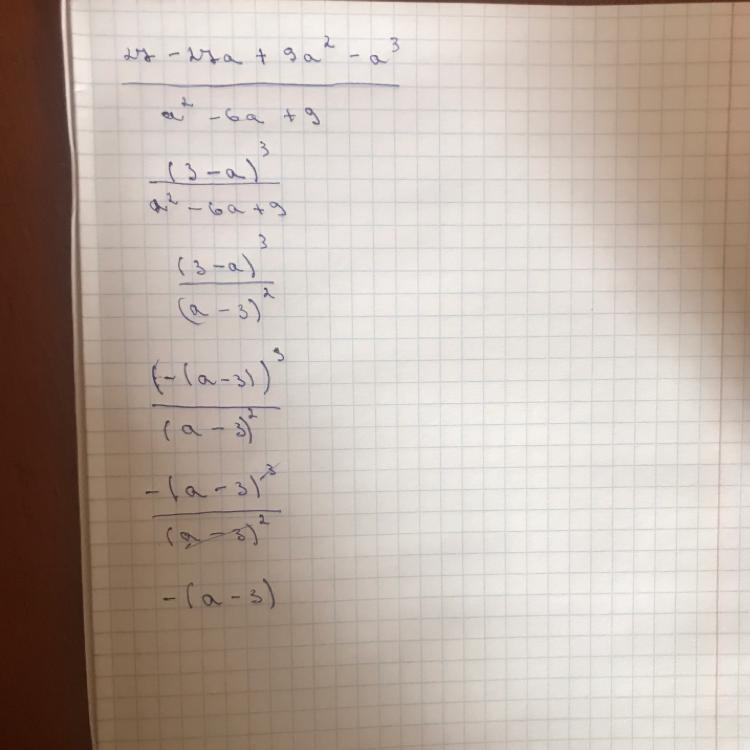 27 - 27a + 9a² - a³
a² - 6a + 9
(3 - a)³
a² - 6a + 9
(3 - a)³
(a - 3)²
(-(a - 3))³
(a - 3)²
-(a - 3)³
(a - 3)²
-(a - 3)